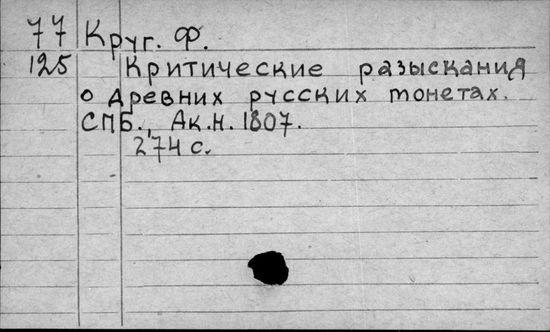 77 Круг. Ф.
125 Критические разыскания
о древних русских монетах.
СПБ., Ак.н. 1807.
274 с.